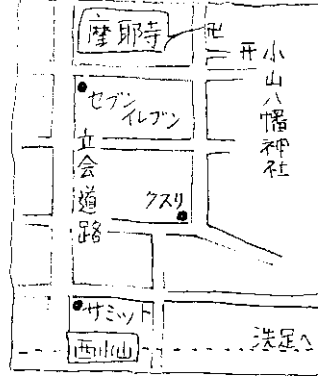 摩耶寺
卍
小山八幡神社
セブン
イレブン
立会道路
クスリ
サミット
西小山
洗足へ